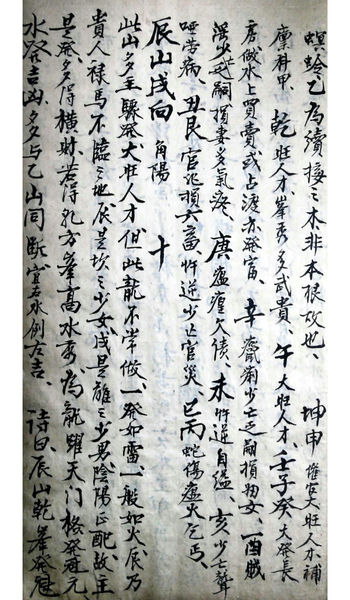 螟蛉乞為續接之木非本根故也、坤申催官大旺人才補
廩科甲、乾旺人才峯秀多武貴、午大旺人才、壬子癸大發長
房做水上買賣或占渡亦發富、辛癆痢少亡乏嗣損幼女、酉賊
盜少乏嗣損妻多氣疼、庚瘟㾮欠債、未忤逆自缢、亥少亡聾
啞勞病、丑艮官訟損六畜忤逆少亡官災、巳丙蛇傷虛火乞丐、
辰山戌向 角陽 十
此山多主驟發大旺人才但此龍不崇做一發如雷一般如火辰乃
貴人祿馬不臨之地辰是坎之少女戌是離之少男陰陽正配故主
是發多得橫財若得乳方峯高水秀為龍躍天門格發冠元
水發吉凶多與乙山同斷宜右水倒左吉、詩曰、辰山乾峯發冠